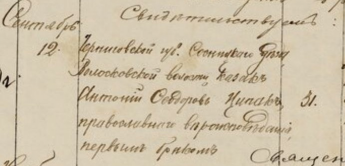 Сентябрь Свидѣтельствуемъ:
12. Черниговской губ. Сосницкаго уѣзда
Волосковской волости казакъ
Антоній Ѳедоровъ 31.
православнаго вѣроисповѣданія,
первымъ бракомъ
Священ